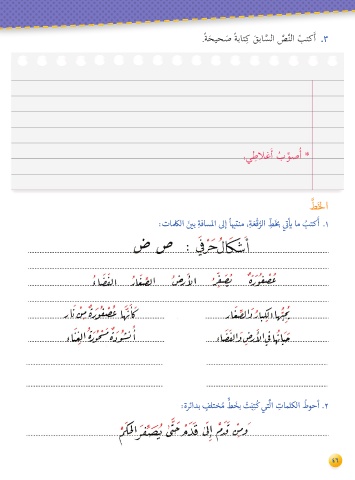 ٣. أَكتبُ النَّصَّ السَّابقَ كِتابةً صَحيحَةً.
* أُصوِّبُ أغلاطِي:
الخطُّ
١. أكتبُ ما يأتي بخطِّ الرُّقعةِ، منتبهاً إلى المسافةِ بينَ الكلماتِ:
أَشكَالُ حَرْفَيْ : ص ض
عُصْفُورَةٌ يُصَفِّرُ الأَرْضُ الصِّغَارُ الفَضَاءُ
يُحِبُّها الكِبَارُ وَالصِّغَار كَأَنَّها عُصْفُورَةٌ مِنْ نَار
حَيَاتُهَا فِي الأَرْضِ وَالفَضَاء أُنْشُودَةٌ مَسْحُورَةُ الغِنَاء
٢. أحوِّطُ الكلماتِ الَّتي كُتِبَتْ بخطٍّ مُختلفٍ بدائرة:
وَمِنْ قَدَمٍ إِلَى قَدَمٍ حَتَّى يُصَفِّرَ الحَكَمْ
٤٦